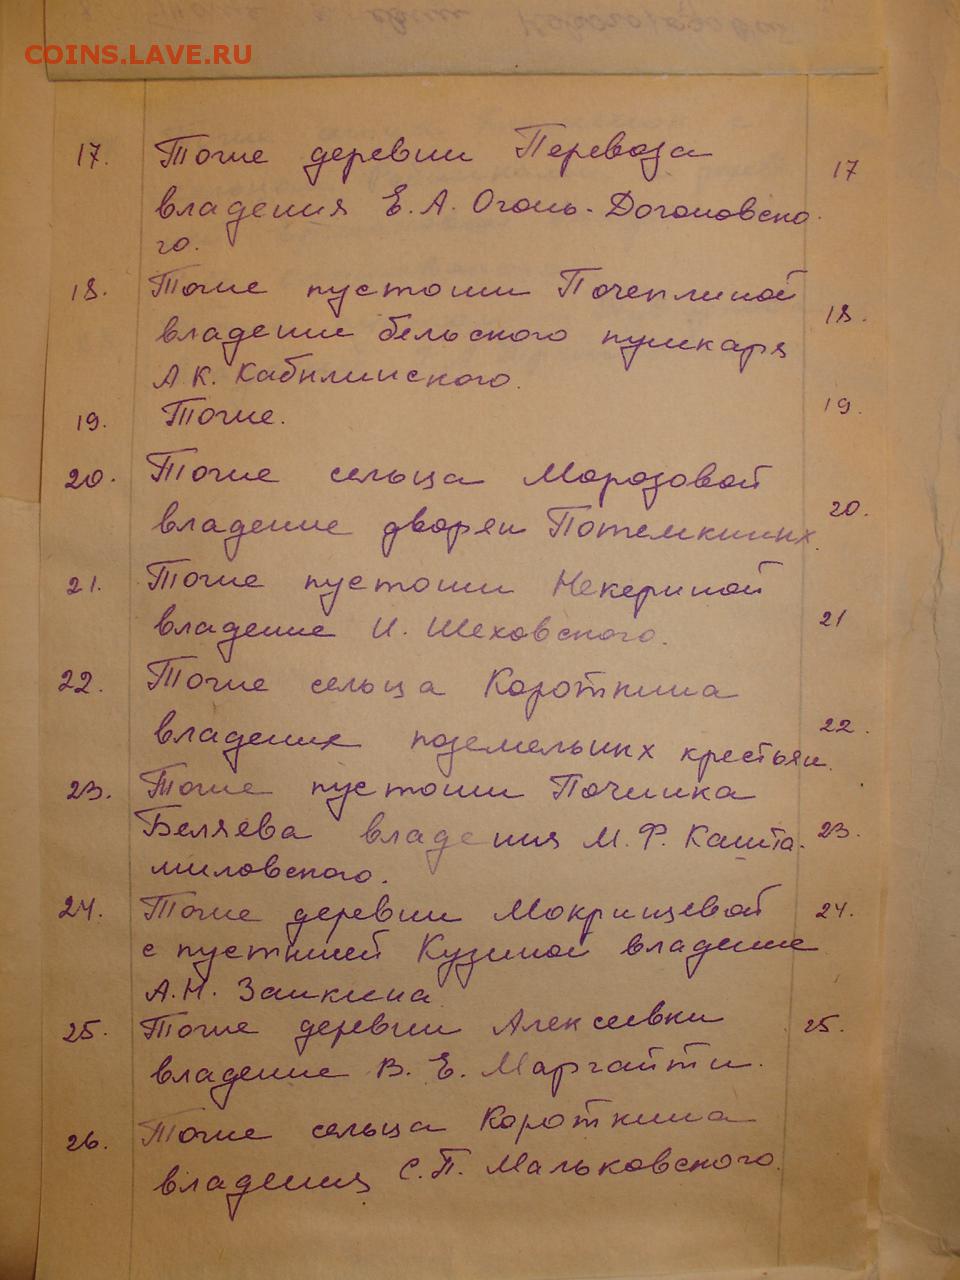 COINS.LAVE.RU
17. Тоже деревни Перевоза 17
владения Е.А. Огонь-Догоновско
го.
18. Тоже пустоши Почеплиной
владение бельского пушкаря 18.
А.К. Кабылинского.
19. Тоже. 19.
20. Тоже сельца Морозовой
владение дворян Потемкиных. 20.
21. Тоже пустоши Некериной
владение И. Шеховского. 21
22. Тоже сельца Короткина
владение поземельных крестьян. 22.
23. Тоже пустоши Починка
Беляева владения М.Ф. Кашта- 23.
миловского.
24. Тоже деревни Мокрищевой 24.
с пустшей Кузиной владение
А.Н. Заикина
25. Тоже деревни Алексеевки 25.
владение В.Е. Маргайти.
26. Тоже сельца Короткина
владения С.П. Мальковского.